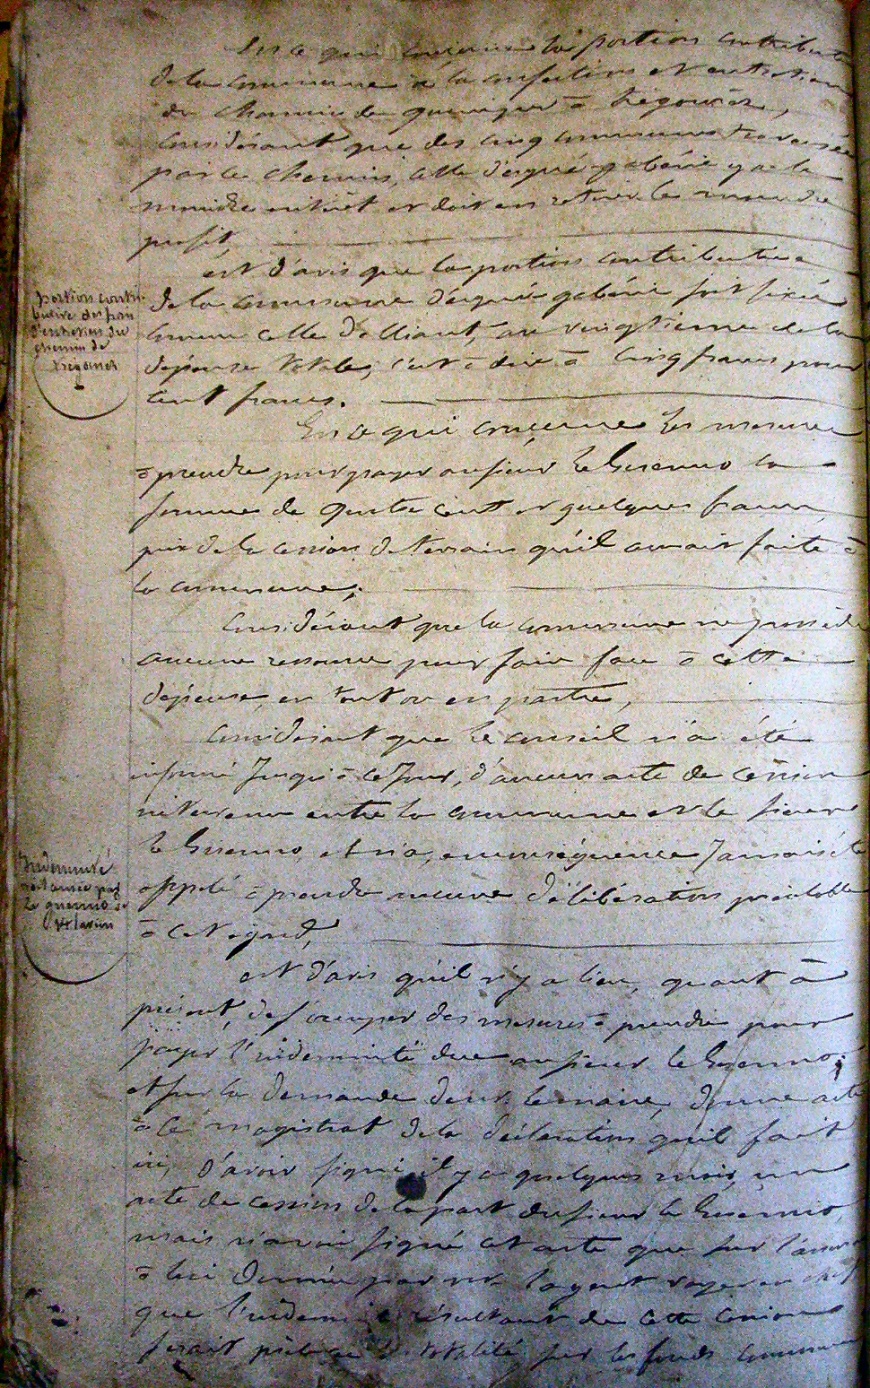 En ce qui concerne la portion contributive
de la commune à la confection et entretien
du chemin de quimper à Trégourez,
Considérant que des cinq communes traversées
par ce chemin, celle d'ergué gabéric y a le
moindre intérêt et doit en retirer le moindre
profit
est d'avis que la portion contributive
de la commune d'ergué gabéric soit fixée
comme celle d'Elliant, au vingtième de la
dépense totale, c'est à dire à cinq francs pour
cent francs.
portion contri-
butive des frais
d'entretien du
chemin de
Trégourez
En ce qui concerne les mesures
à prendre pour payer au sieur le Guenno la
somme de quatre cent et quelques francs,
prix de la cession de terrain qu'il aurait faite à
la commune;
Considérant que la commune ne possède
aucune ressource pour faire face à cette
dépense, en tout ou en partie,
Considérant que le conseil n'a été
informé jusqu'à ce jour, d'aucun acte de cession
intervenu entre la commune et le sieur
le Guenno, et n'a, en conséquence jamais été
appelé à prendre aucune délibération préalable
à cet égard,
Indemnité
réclamée par
le guenno
terrain
est d'avis qu'il n'y a lieu, quant à
présent, de s'occuper des mesures à prendre pour
payer l'indemnité due au sieur le Guenno;
et sur la demande de mr. le maire, donne acte
à ce magistrat de la déclaration qu'il fait
ici, d'avoir signé, il y a quelques mois, un
acte de cession de la part du sieur le Guenno,
mais n'avoir signé cet acte que sur l'assurance
à lui donnée par mr. l'agent voyer en chef
que l'indemnité résultant de cette cession
serait prélevée en totalité sur les fonds communaux